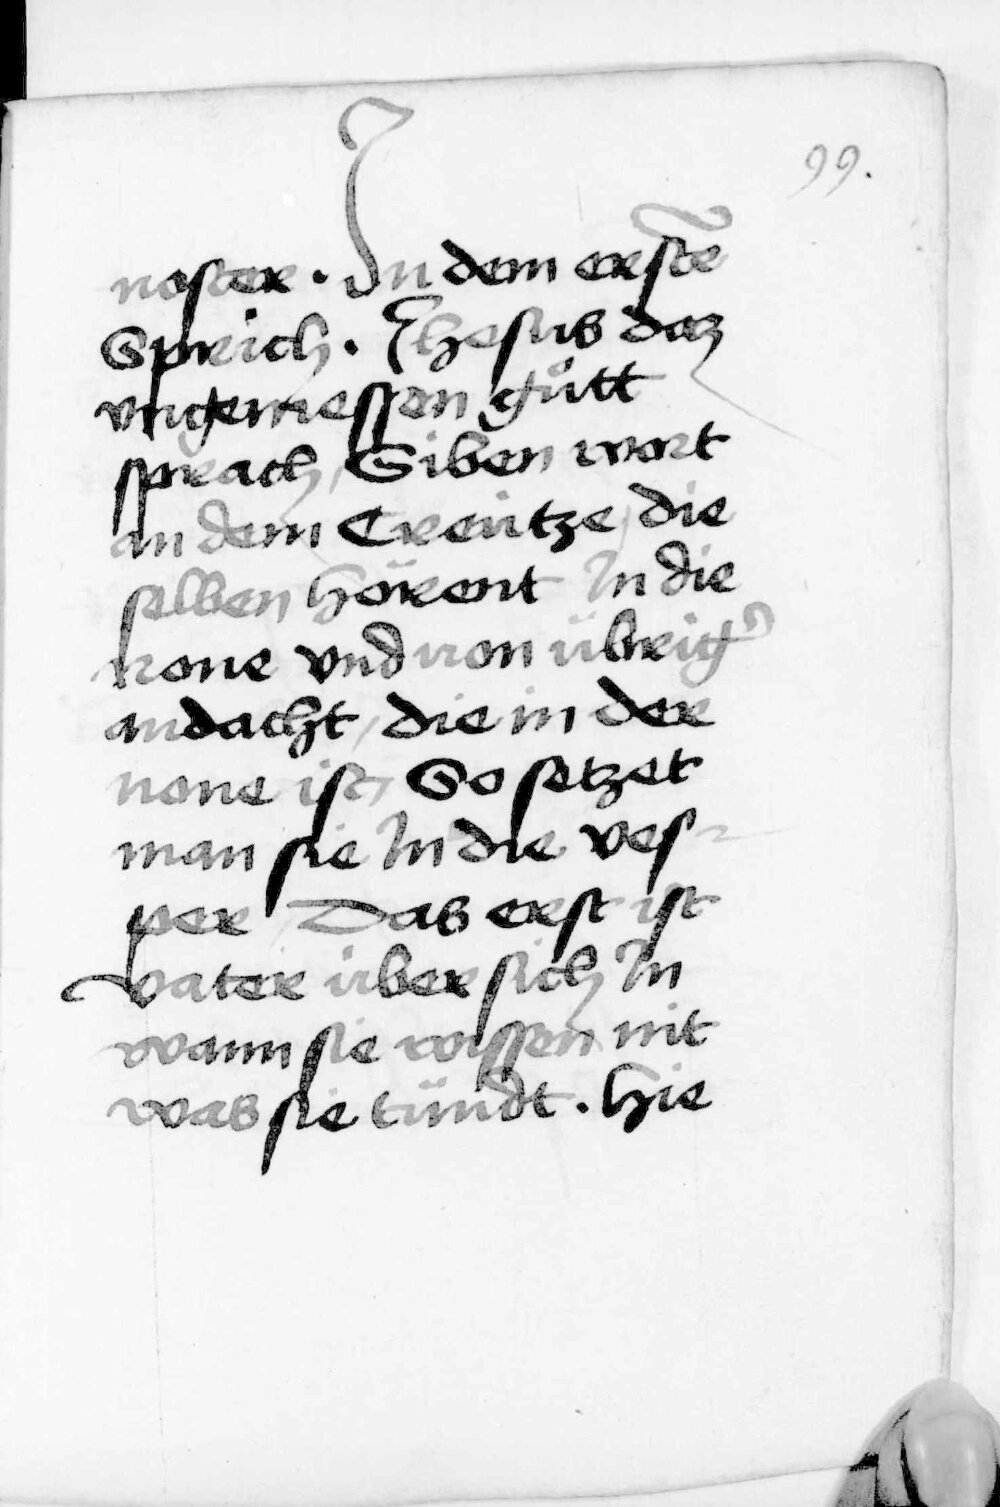 99.
noster. In dem erstē
Sprich. Jhesus daz
vngemessen gůtt
sprach, Siben wort
an dem Creütze, die
selben hörent In die
none vnd von übrig
andacht, die in der
none ist, So setzet
man sie In die ves-
per Das erst ist
vater über sich In
wann sie wissen nit
was sie tündt. hie